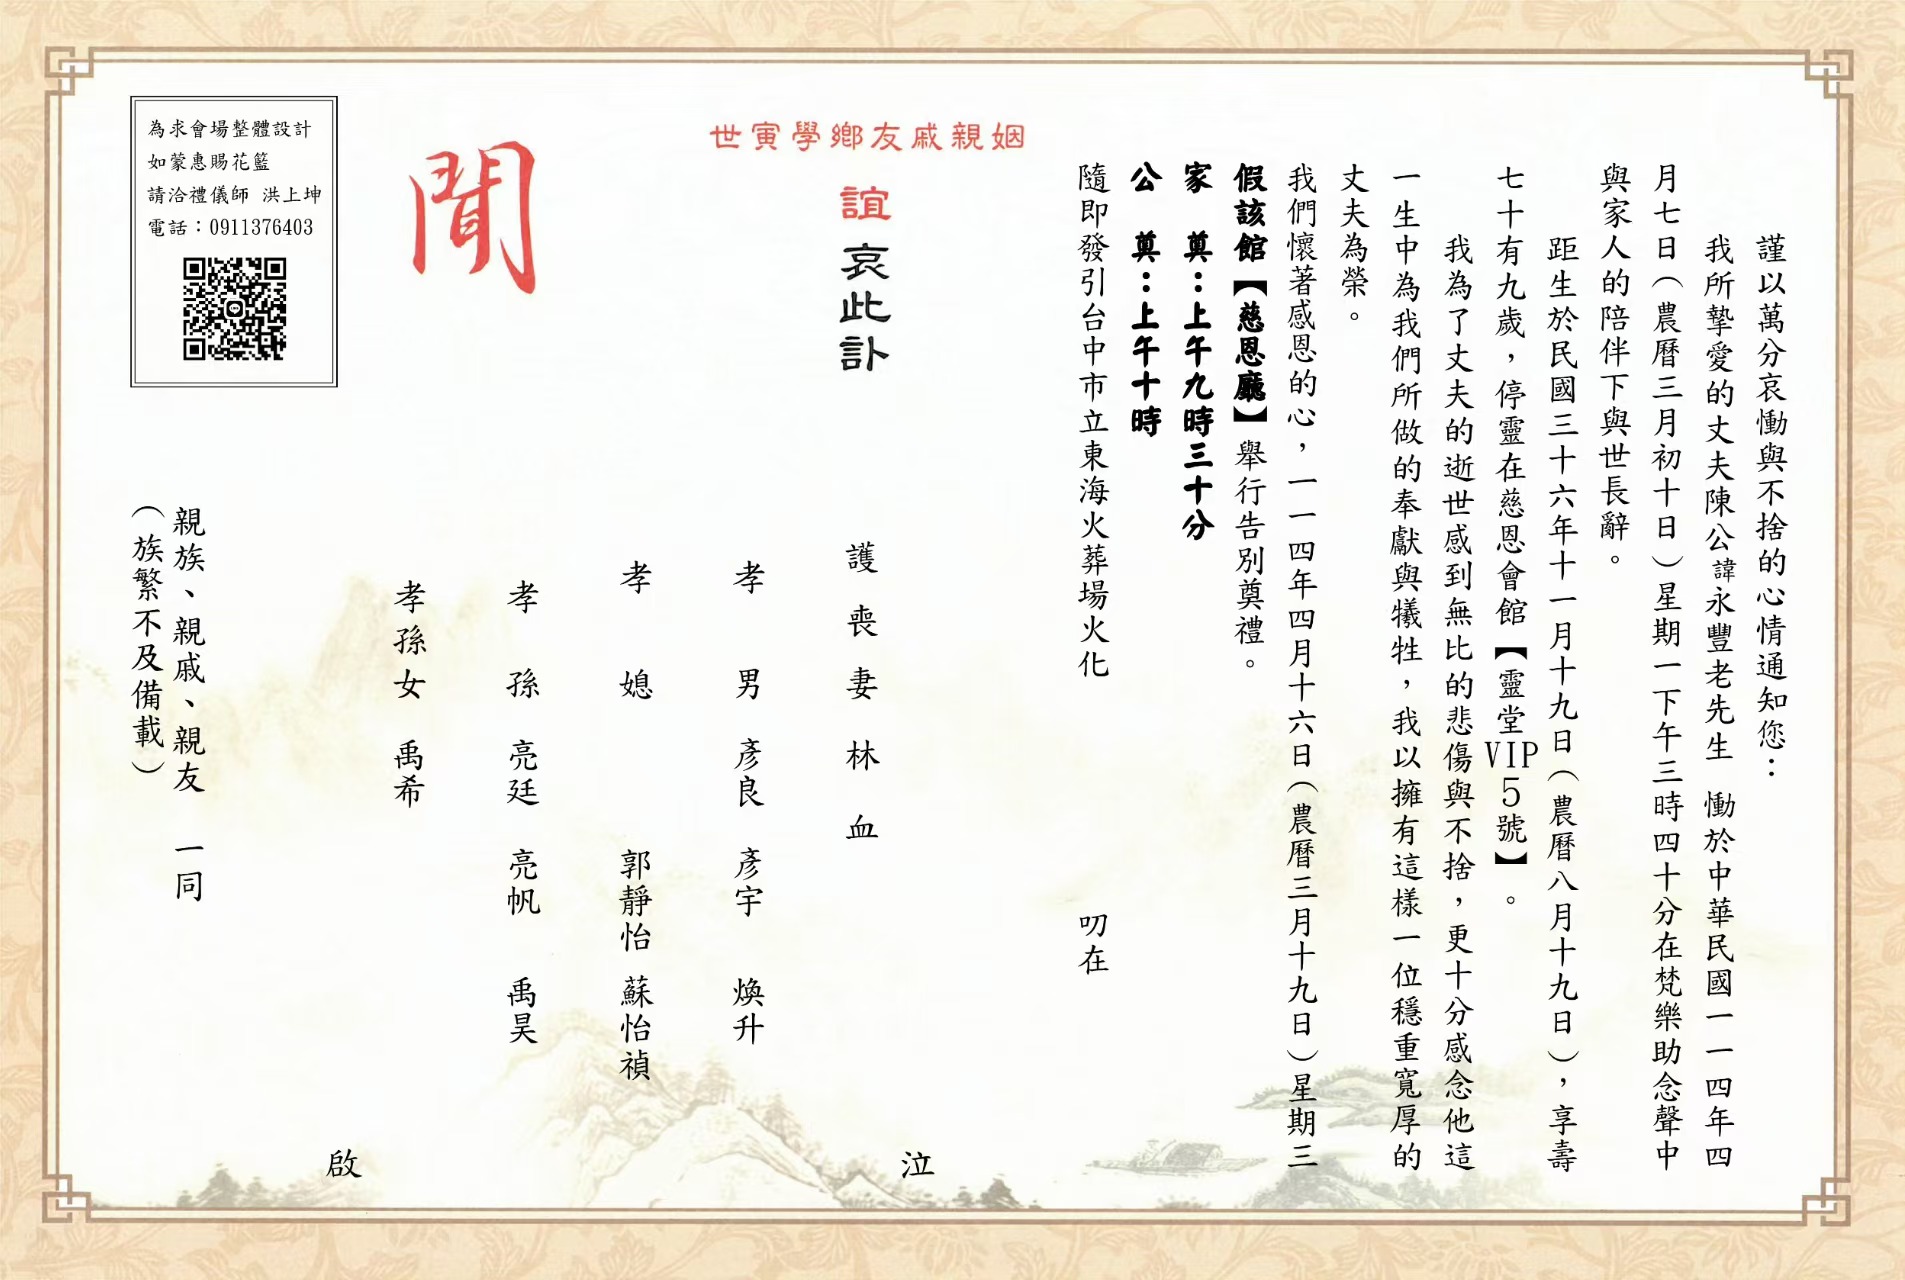 謹以萬分哀慟與不捨的心情通知您：
我所摯愛的丈夫陳公諱永豐老先生 慟於中華民國一一四年四
月七日（農曆三月初十日）星期一下午三時四十分在梵樂助念聲中
與家人的陪伴下與世長辭。
距生於民國三十六年十一月十九日（農曆八月十九日），享壽
七十有九歲，停靈在慈恩會館【靈堂VIP5號】。
我為了丈夫的逝世感到無比的悲傷與不捨，更十分感念他這
一生中為我們所做的奉獻與犧牲，我以擁有這樣一位穩重寬厚的
丈夫為榮。
我們懷著感恩的心，一一四年四月十六日（農曆三月十九日）星期三
假該館【慈恩廳】舉行告別奠禮。
家 奠：上午九時三十分
公 奠：上午十時
隨即發引台中市立東海火葬場火化 叨在
姻親戚友鄉學寅世
誼哀此訃
聞
護喪妻 林血 泣
孝男 彥良 彥宇 煥升
孝媳 郭靜怡 蘇怡禎
孝孫 亮廷 亮帆 禹昊
孝孫女 禹希
啟
親族、親戚、親友 一同
（族繁不及備載）
為求會場整體設計
如蒙惠賜花籃
請洽禮儀師 洪上坤
電話：0911376403